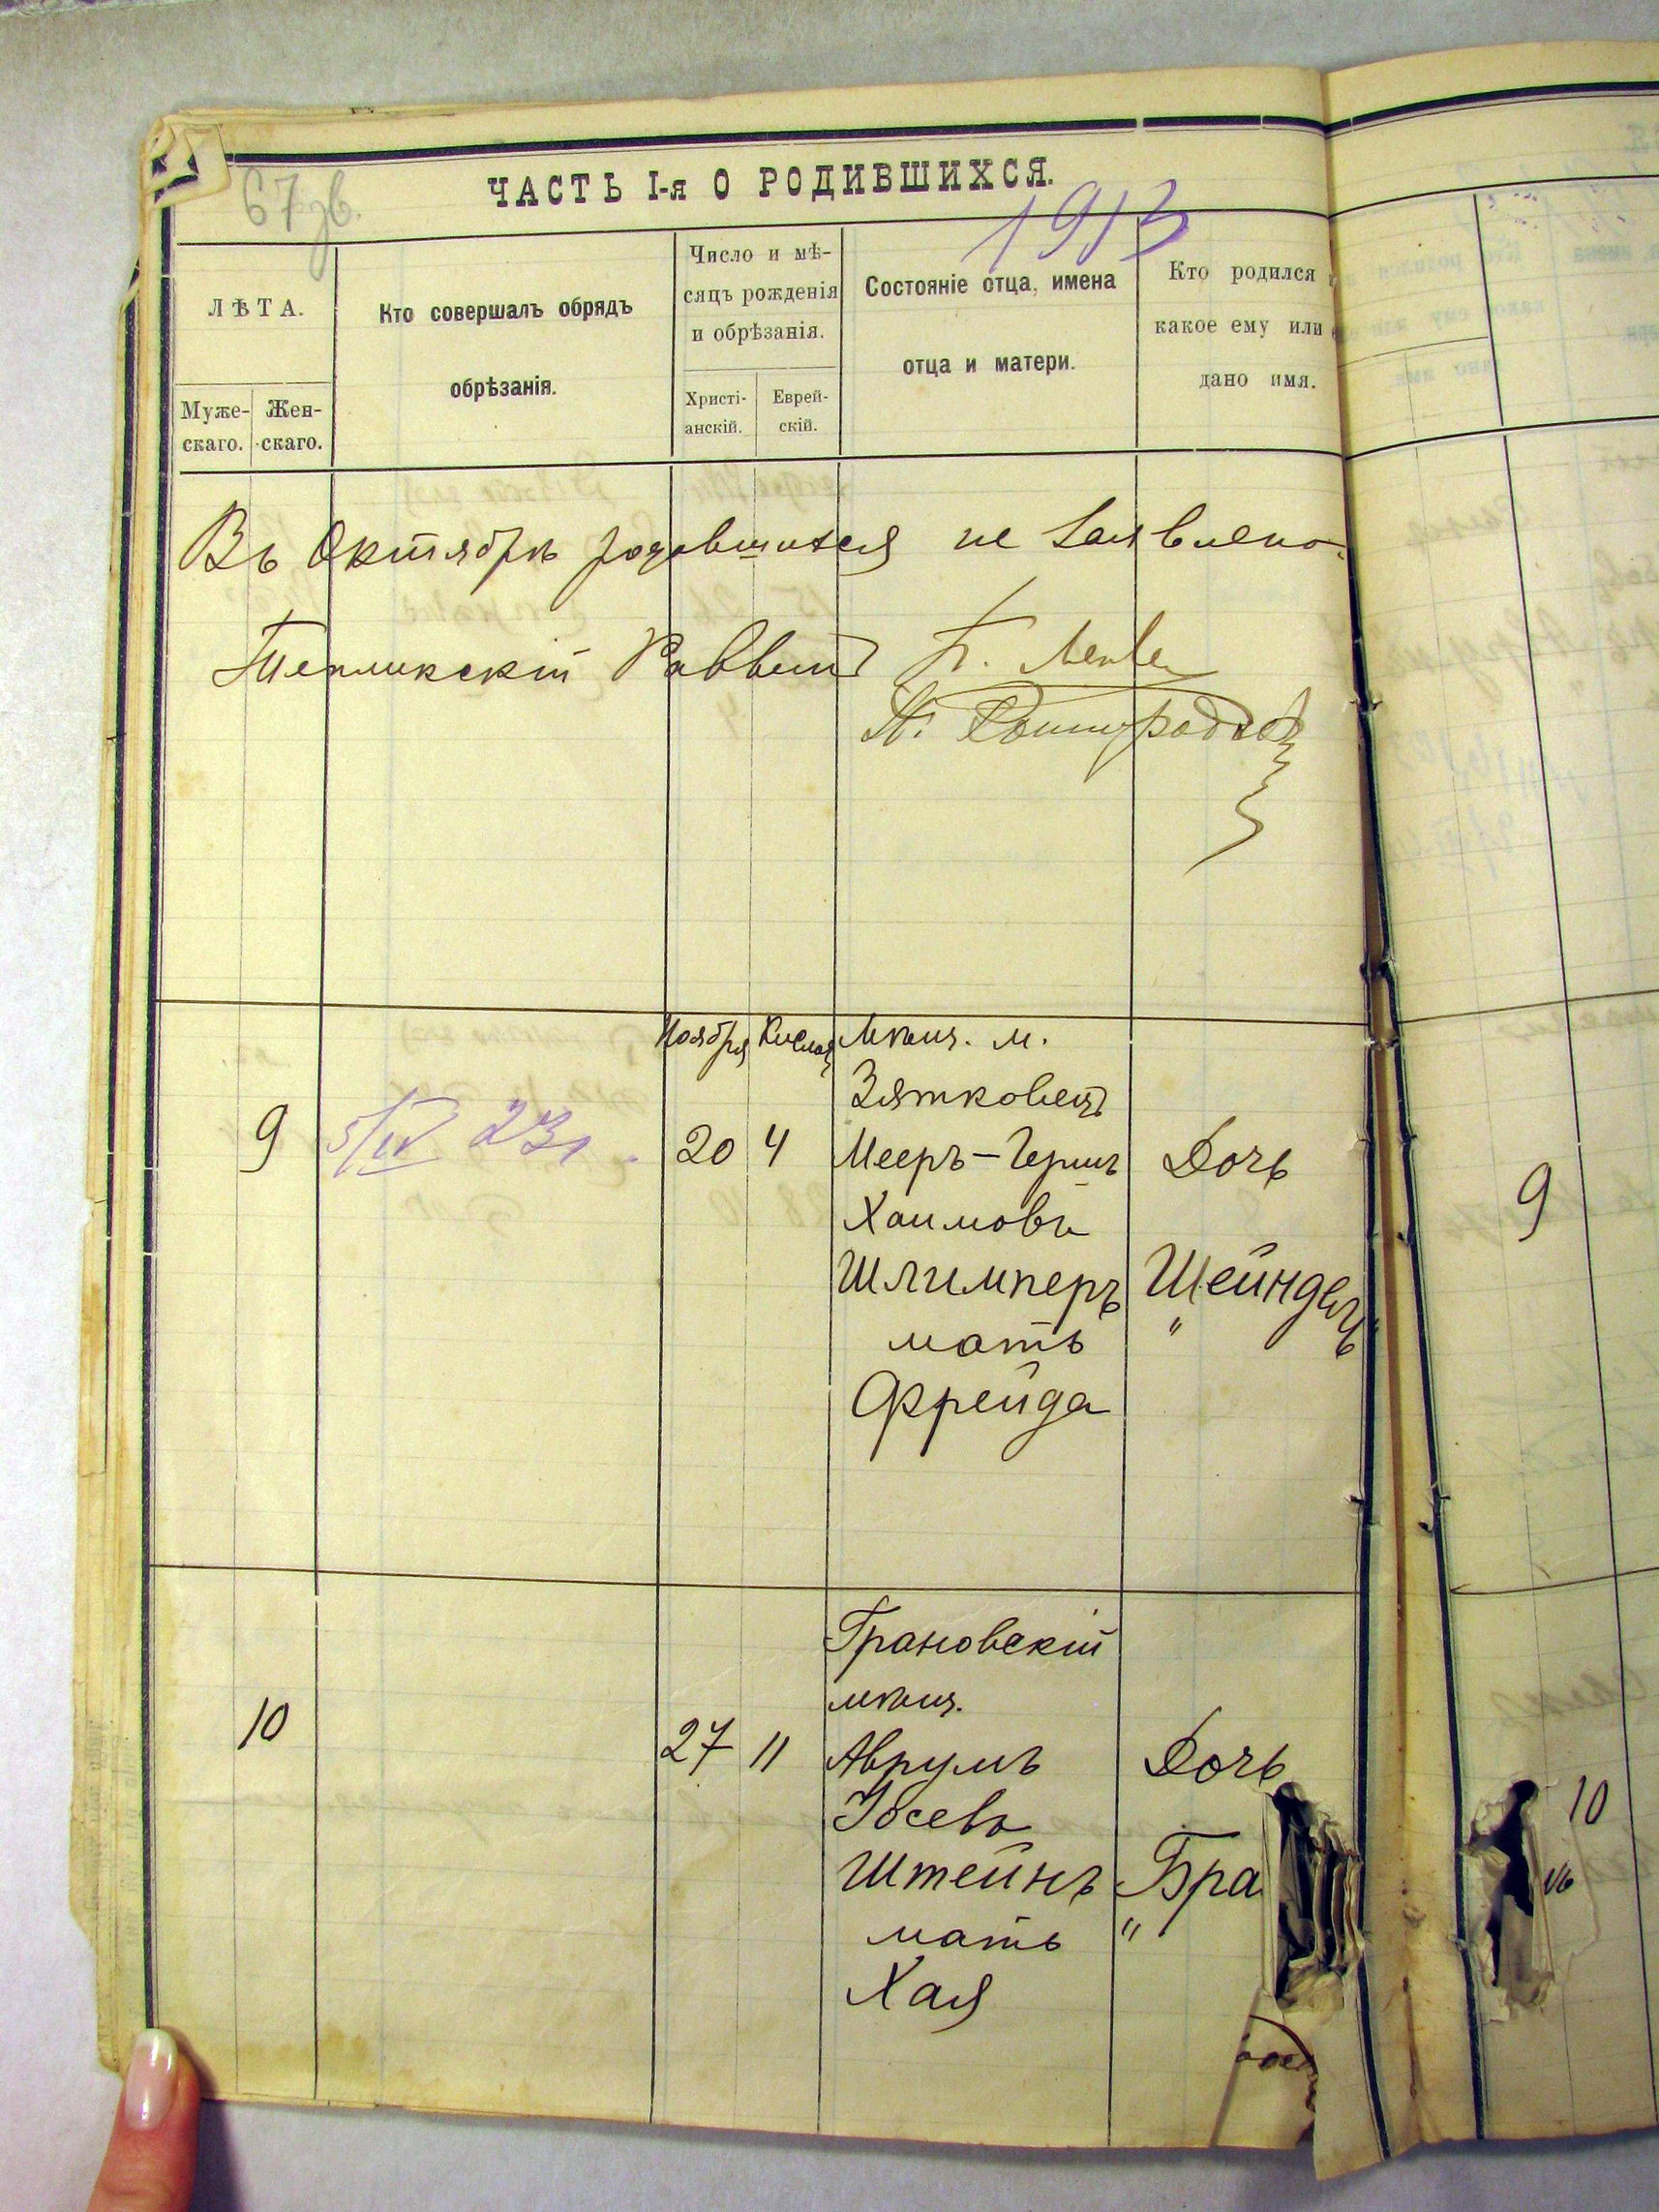 67об.
ЧАСТЬ I-я О РОДИВШИХСЯ.
1913
ЛѢТА.
Муже-
скаго.
Жен-
скаго.
Кто совершалъ обрядъ
обрѣзанія.
Число и мѣ-
сяцъ рожденія
и обрѣзанія.
Христі-
анскій.
Еврей-
скій.
Состояніе отца, имена
отца и матери.
Кто родился
какое ему или
дано имя.
Въ Октябрѣ родившихся не заявлено.
Тепликскій Раввинъ
Ноября Кислев Мѣщ. м.
Зятковецъ
9 5/IV 23г. 20 4 Мееръ-Гершъ Дочь 9
Хаимовъ
Шлимперъ „Шейндель“
мать
Фрейда
Грановскій
мѣщ.
10 27 11 Аврумъ Дочь 10
Іосевъ
Штейнъ „Бра
мать
Хая